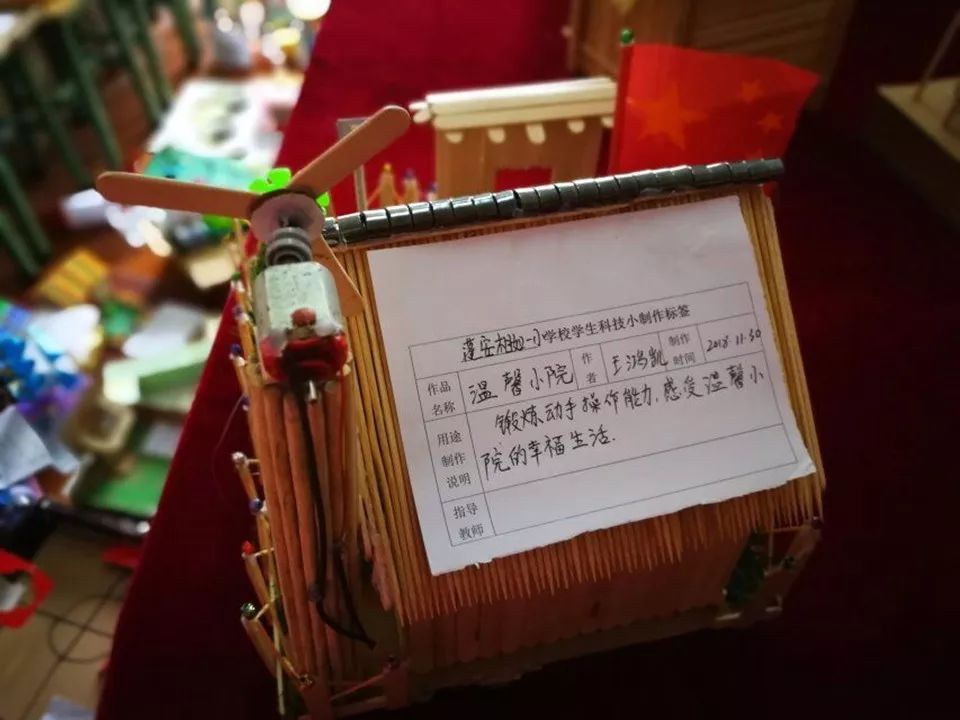 蓬安相如一小学校学生科技小制作标签
作品名称 温馨小院 作者 王鸿凯 制作时间 2018.11.30
用途制作说明 锻炼动手操作能力,感受温馨小
院的幸福生活.
指导教师